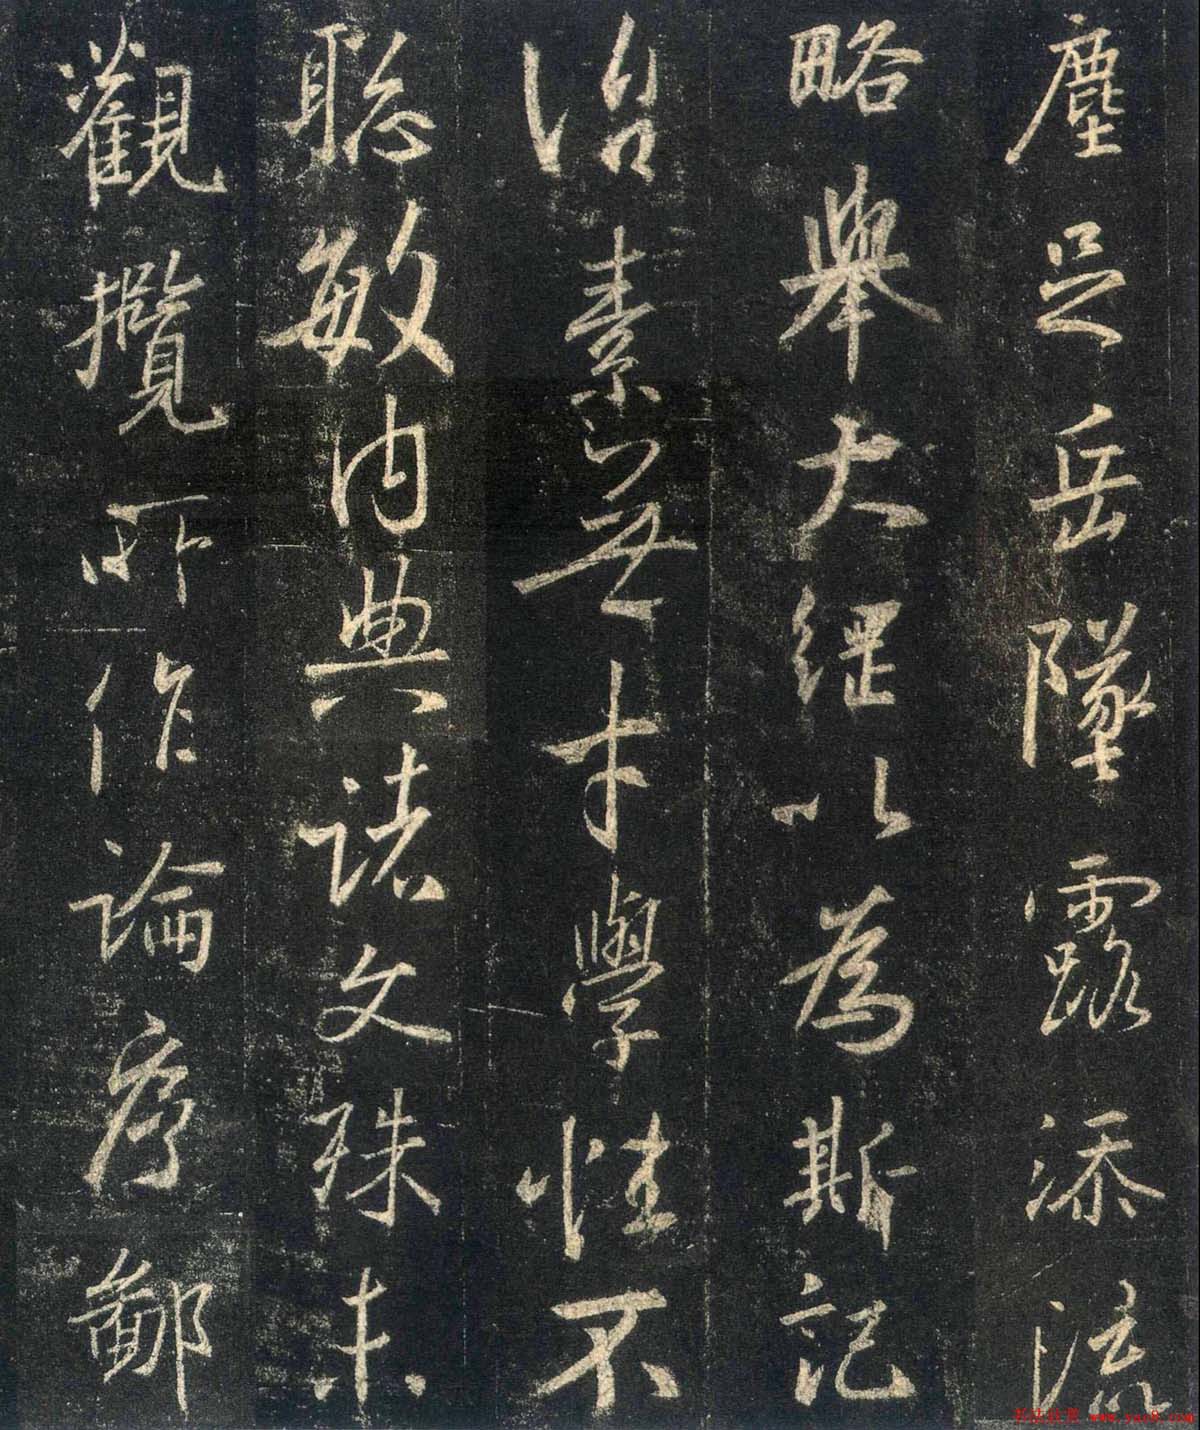 塵足岳墜露添流
略舉大綱以為斯記
治素無才學性不
聰敏內典諸文殊未
觀攬所作論序鄙
www.yac8.com